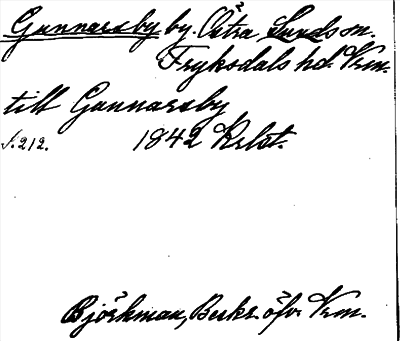 Gunnarsby by. Östra Sunds sn.
Fryksdals hd. Vrm.
till Gunnarsby
s. 212. 1842 Krlst.
Björkman, Beskr. öfv. Vrm.